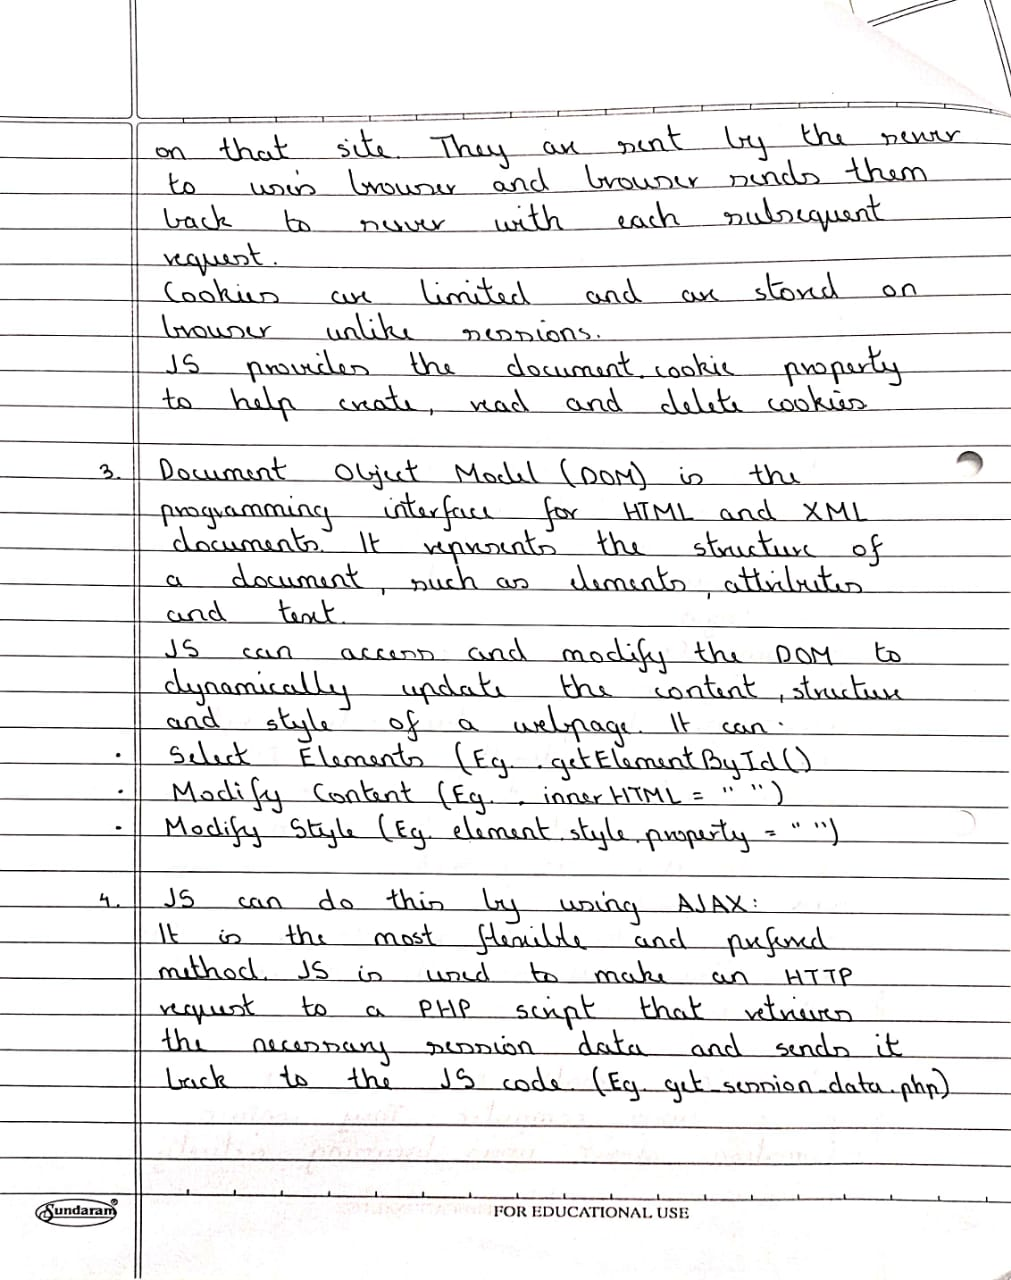 on that site. They are sent by the server
to users browser and browser sends them
back to server with each subsequent
request.
Cookies are limited and are stored on
browser unlike sessions.
JS provides the document.cookie property
to help create, read and delete cookies
3. Document Object Model (DOM) is the
programming interface for HTML and XML
documents. It represents the structure of
a document, such as elements, attributes
and text.
JS can access and modify the DOM to
dynamically update the content, structure
and style of a webpage. It can:
• Select Elements (Eg. .getElementById()
• Modify Content (Eg. .innerHTML = " ")
• Modify Style (Eg. element.style.property = " ")
4. JS can do this by using AJAX:
It is the most flexible and prefered
method. JS is used to make an HTTP
request to a PHP script that retrieves
the necessary session data and sends it
back to the JS code. (Eg. get_session_data.php)
Sundaram®
FOR EDUCATIONAL USE